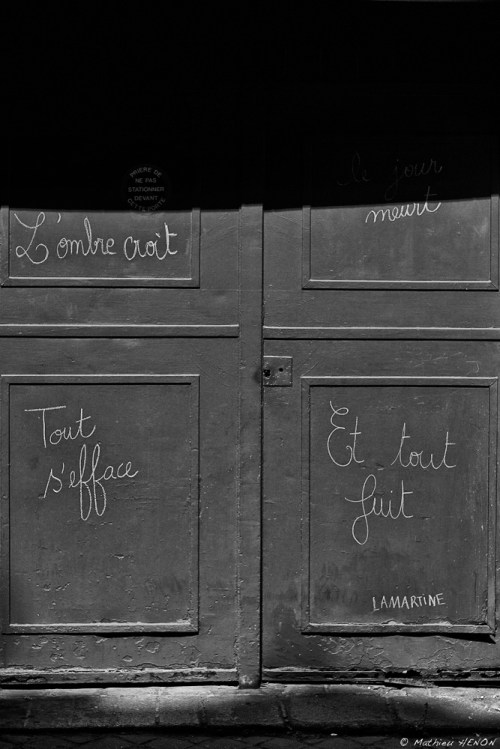 PRIÈRE DE
NE PAS
STATIONNER
DEVANT
CETTE PORTE
L'ombre croît
le jour
meurt
Tout
s'efface
Et tout
fuit
LAMARTINE
© Mathieu HENON